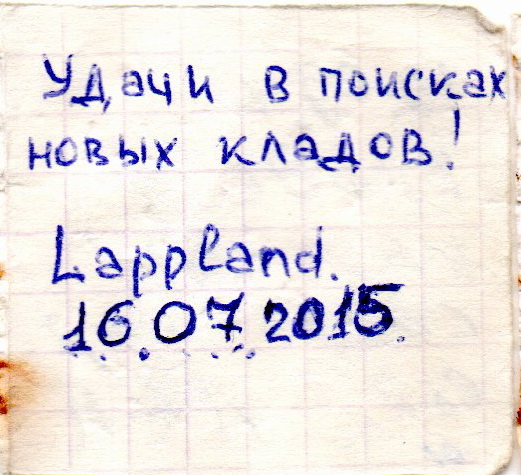 Удачи в поисках
новых кладов!
Lappland.
16.07.2015